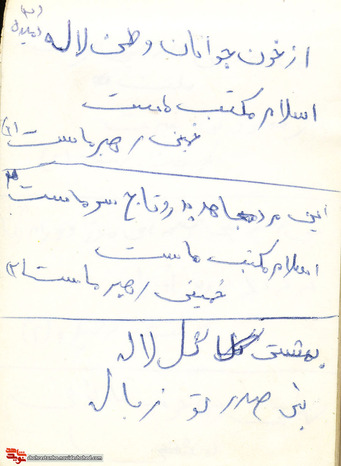 (۳)
دمیده
از خون جوانان وطن لاله
اسلام مکتب ماست
خمینی رهبر ماست (۲)
این مرد مجاهد پدر و تاج سر ماست
اسلام مکتب ماست
خمینی رهبر ماست (۲)
بهشتی گل لاله
بنی صدر تو زباله